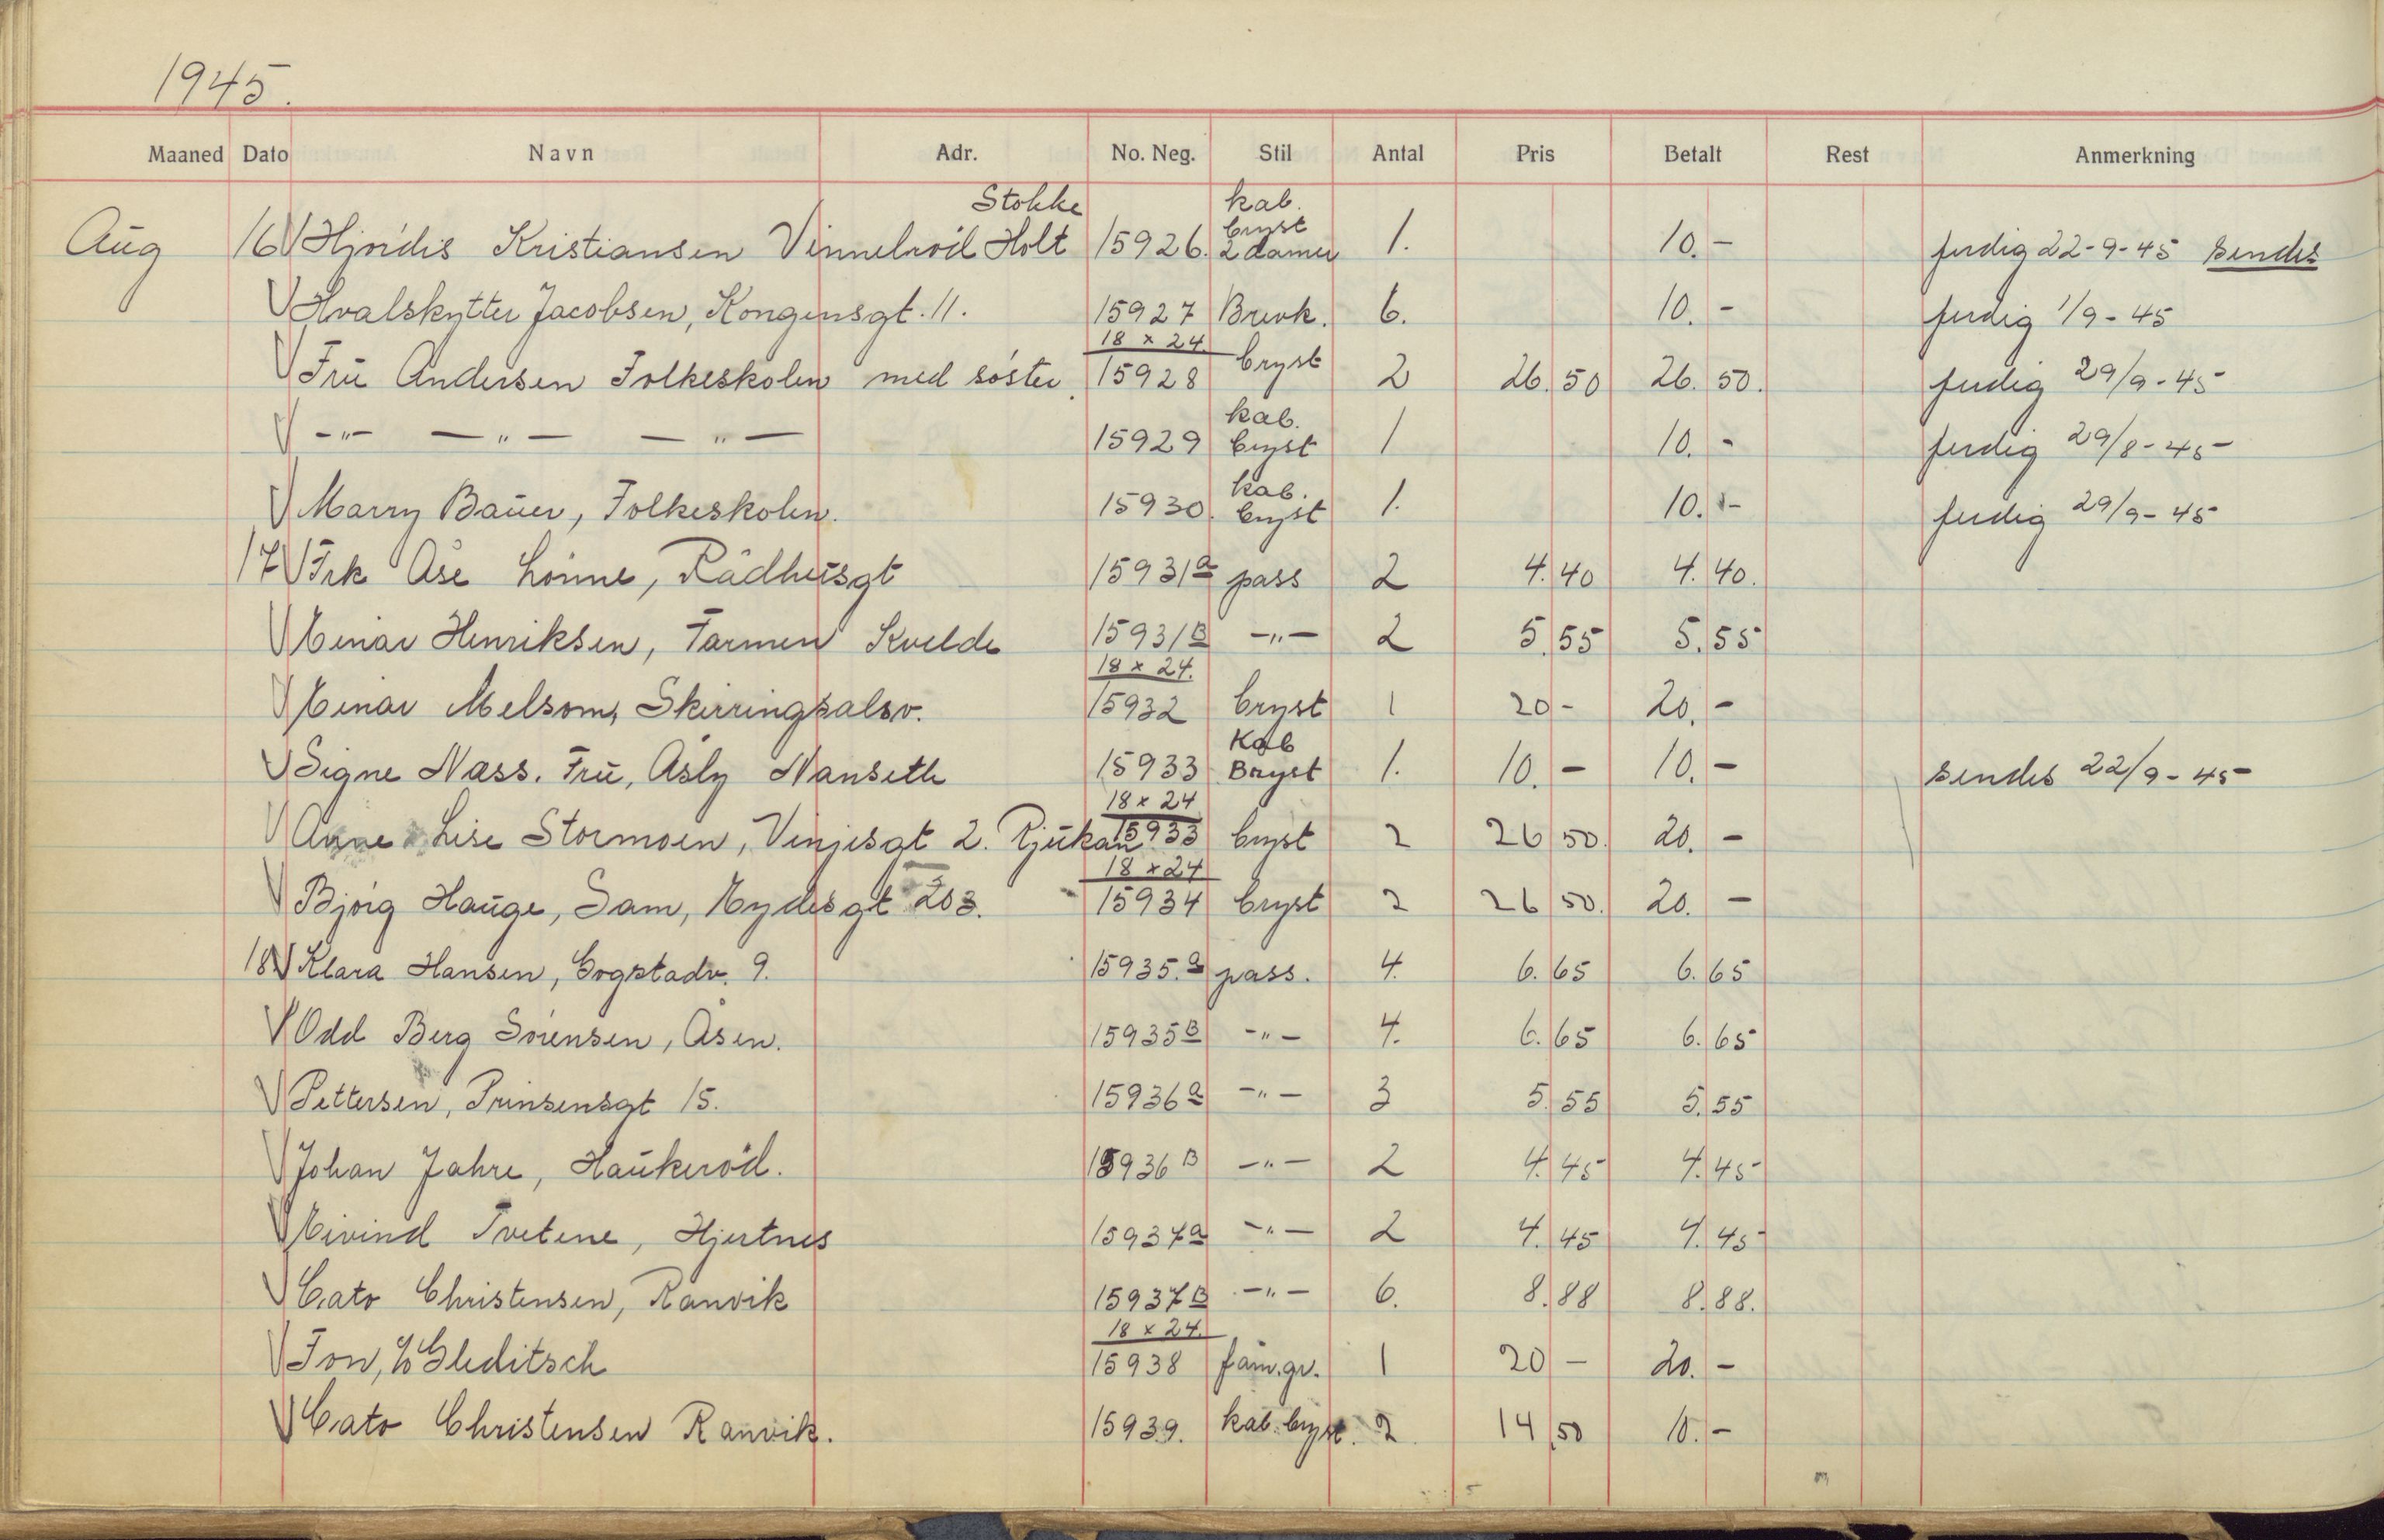 1945.
Maaned Dato Navn Adr. No. Neg. Stil Antal Pris Betalt Rest Anmerkning
Stokke kab.
Aug 16 Hjørdis Kristiansen Vinnelrød Holt 15926. bryst 2 damer 1. 10.- ferdig 22-9-45 sendes
Hvalskytter Jacobsen, Kongensgt. 11. 15927 Brevk. 6. 10.- ferdig 1/9-45
18 x 24
Fru Andersen Folkeskolen med søster. 15928 bryst 2 26.50 26.50. ferdig 29/9-45
kab.
-"- -"- -"- 15929 bryst 1 10.- ferdig 29/8-45
kab.
Marry Bauer, Folkeskolen. 15930. bryst 1. 10.- ferdig 29/9-45
17 Frk Åse Lønne, Rådhusgt 15931a pass 2 4.40 4.40.
Einar Henriksen, Farmen Kvelde 15931B -"- 2 5.55 5.55
18 x 24.
Einar Melsom, Skirringsalsv. 15932 bryst 1 20- 20.-
Kab
Signe Nass. Fru, Åsly Nanseth 15933 Bryst 1. 10.- 10.- sendes 22/9-45
18 x 24
Anne Lise Stormoen, Vinjesgt 2. Rjukan 15933 bryst 2 26 50. 20.-
18 x 24
Bjørg Hauge, Sam, Eydesgt 203. 15934 bryst 2 26 50. 20.-
18 Klara Hansen, Bogstadv. 9. 15935.a pass. 4. 6.65 6.65
Odd Berg Sørensen, Åsen. 15935B -"- 4. 6.65 6.65
Pettersen, Prinsensgt 15. 15936a -"- 3 5.55 5.55
Johan Jahre, Haukerød. 15936B -"- 2 4.45 4.45
Eivind Tvetene, Hjertnes 15937a -"- 2 4.45 4.45
Cato Christensen, Ranvik 15937B -"- 6. 8.88 8.88.
18 x 24.
Fon, c/o Gleditsch 15938 fam.gr. 1 20- 20.-
Cato Christensen Ranvik. 15939. kab. bryst. 2 14,50 10.-